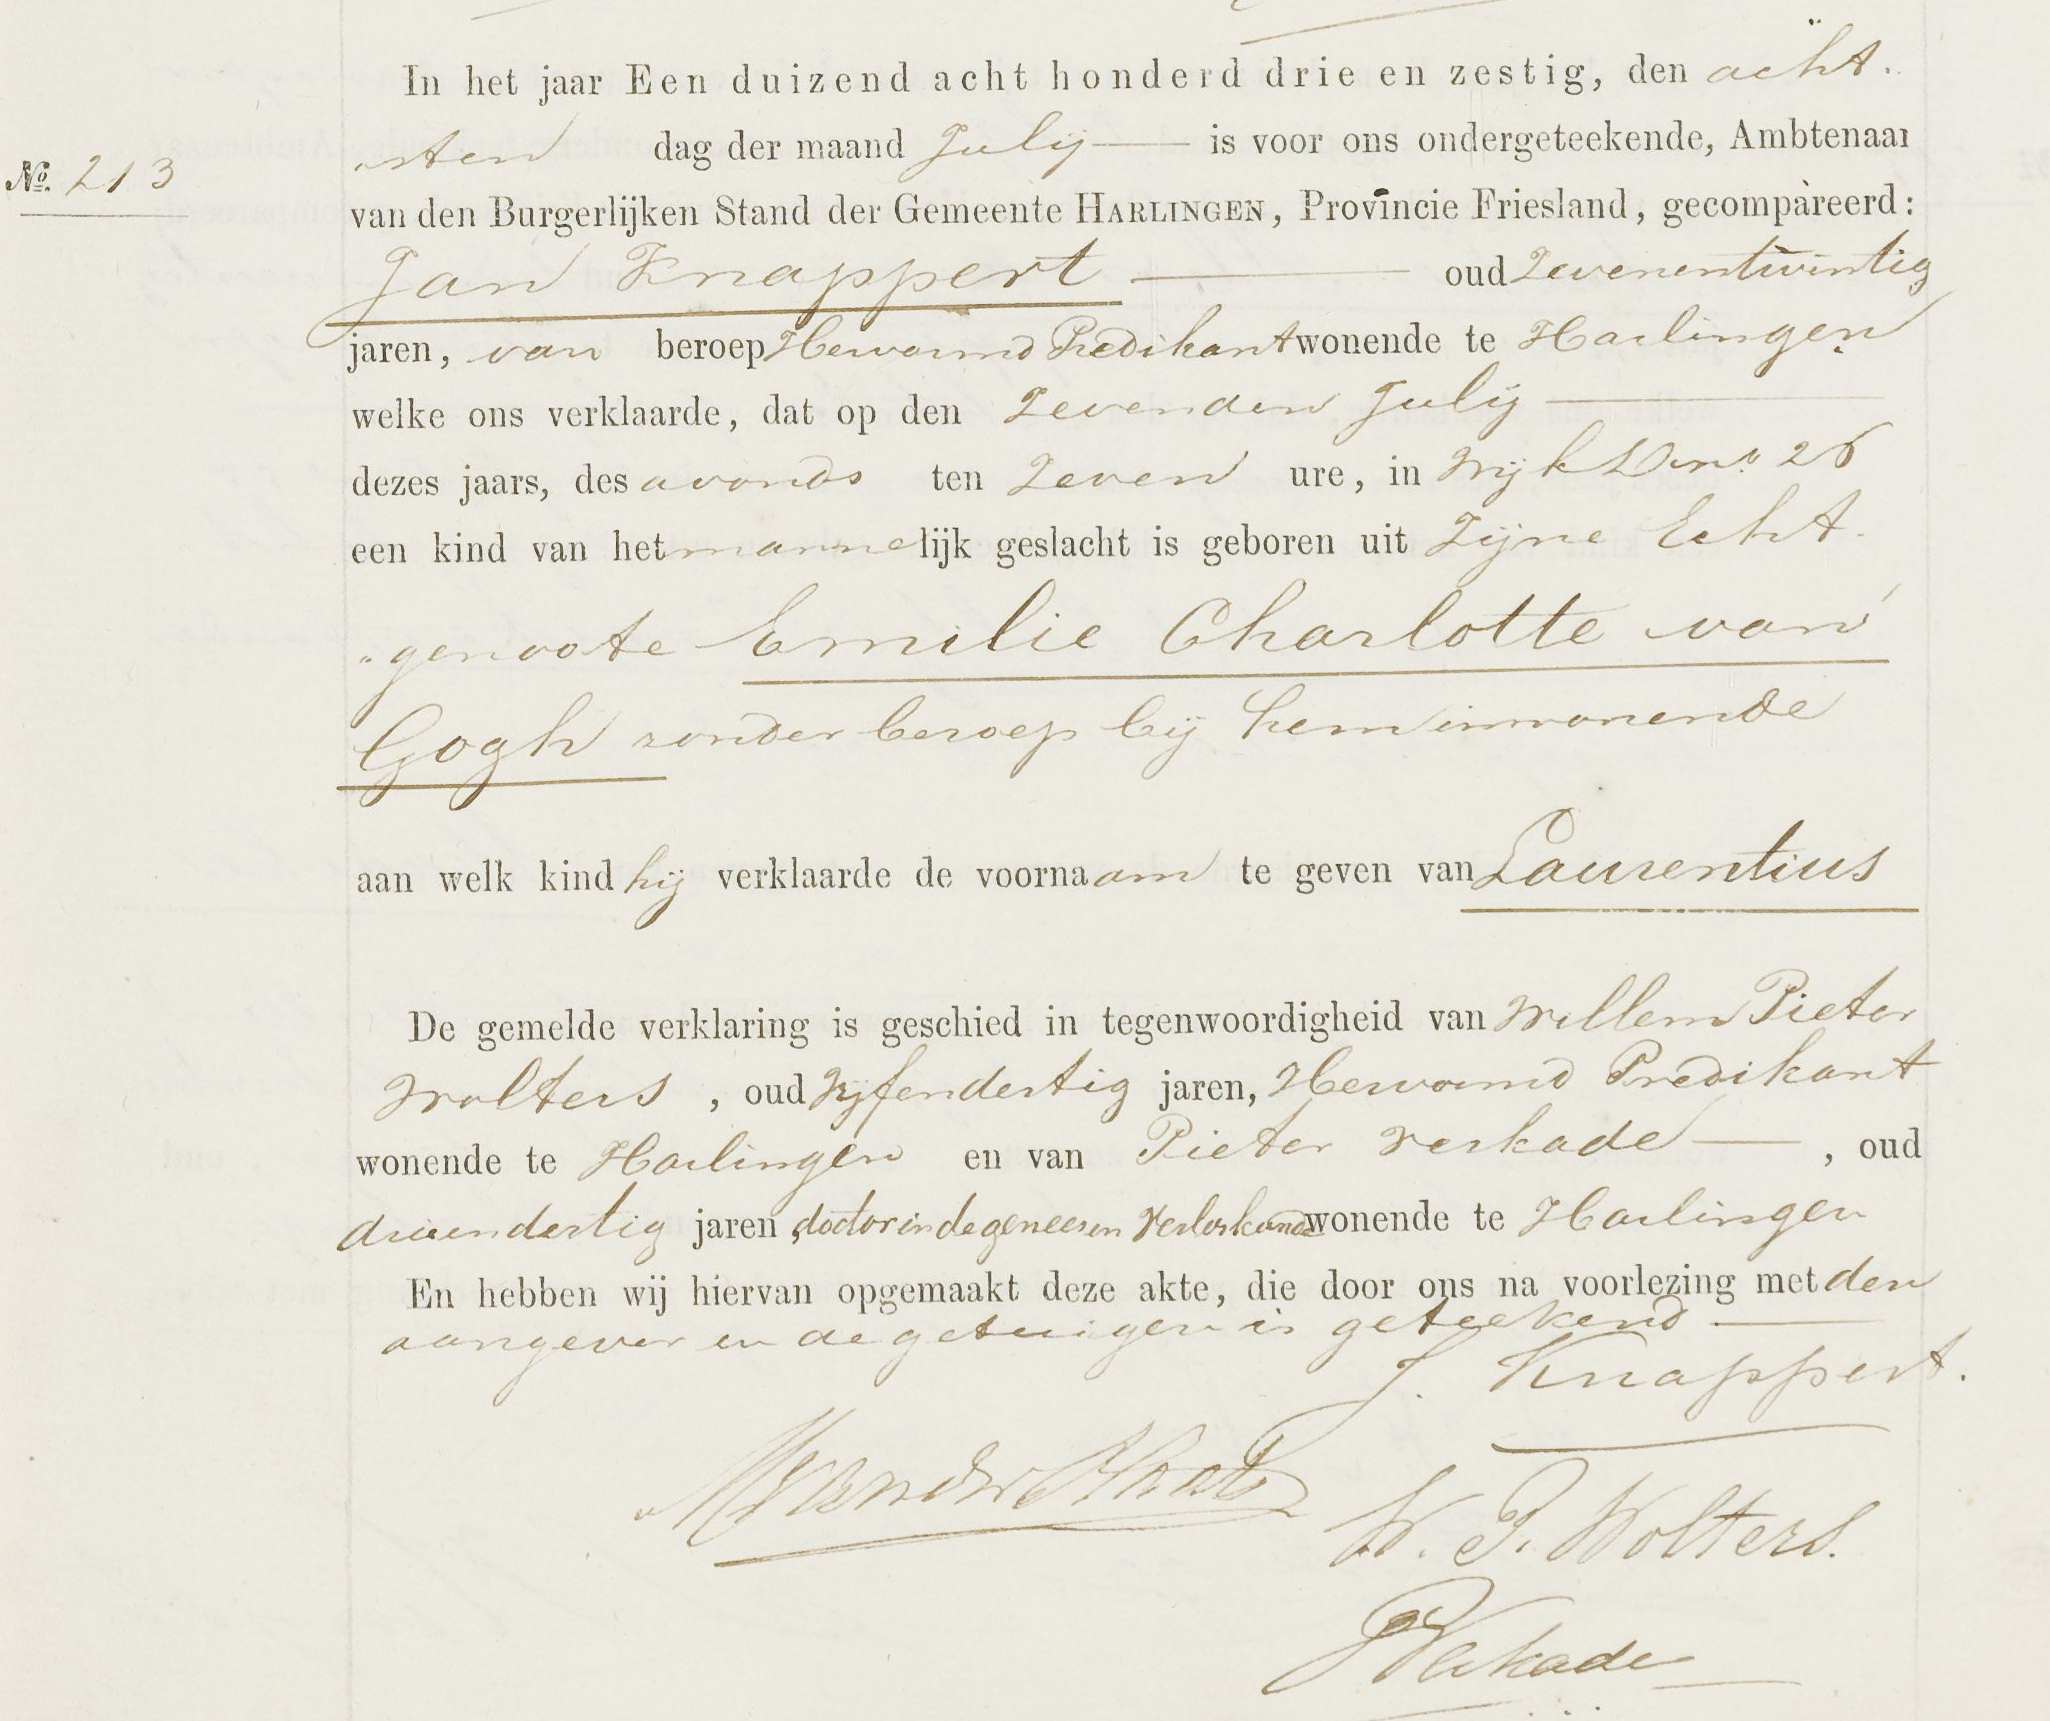 In het jaar Een duizend acht honderd drie en zestig, den acht-
"sten dag der maand Julij — is voor ons ondergeteekende, Ambtenaar
№. 213
van den Burgerlijken Stand der Gemeente HARLINGEN, Provincie Friesland, gecompareerd:
Jan Knappert — oud Zevenentwintig
jaren, van beroep Hervormd Predikant wonende te Harlingen
welke ons verklaarde, dat op den Zevenden Julij —
dezes jaars, des avonds ten Zeven ure, in Wijk D no. 26
een kind van het mannelijk geslacht is geboren uit Zijne Echt-
"genoote Emilie Charlotte van
Gogh zonder beroep bij hem inwonende
aan welk kind hij verklaarde de voornaam te geven van Laurentius
De gemelde verklaring is geschied in tegenwoordigheid van Willem Pieter
Wolters, oud Vijfendertig jaren, Hervormd Predikant
wonende te Harlingen en van Pieter Verkade —, oud
drieendertig jaren, doctor in de genees en Verloskunde wonende te Harlingen
En hebben wij hiervan opgemaakt deze akte, die door ons na voorlezing met den
aangever en de getuigen is geteekend —
J. Knappert.
W. P. Wolters.
PVerkade